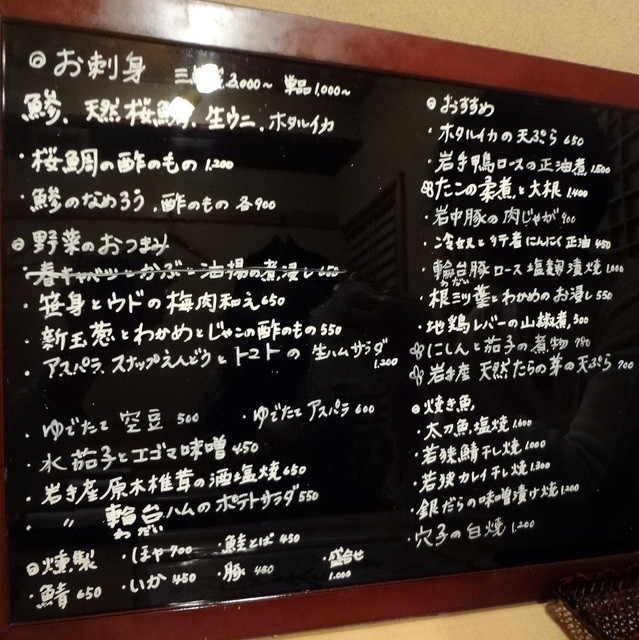 ◎お刺身 三 3,000〜 単品1,000〜
鯵、天然桜鯛、生ウニ、ホタルイカ
・桜鯛の酢のもの 1,200
・鯵のなめろう、酢のもの 各900
◎野菜のおつまみ
・春キャベツとかぶと油揚の煮浸し 650
・笹身とウドの梅肉和え 650
・新玉葱とわかめとじゃこの酢のもの 550
・アスパラ、スナップえんどうとトマトの生ハムサラダ 1,200
・ゆでたて空豆 500 ・ゆでたてアスパラ 600
・水茄子とエゴマ味噌 450
・岩手産原木椎茸の酒塩焼 650
・〃 ハムのポテトサラダ 550
◎燻製 ・ほや 700 ・鮭とば 450 ・盛合せ 1,000
・鯖 650 ・いか 450 ・豚 450
◎おすすめ
・ホタルイカの天ぷら 650
・岩手鴨ロースの正油煮 1,500
たこの柔煮と大根 1,400
・岩中豚の肉じゃが 900
・行者にんにく正油 450
・豚ロース塩麹漬焼 1,000
・根三ツ葉とわかめのお浸し 550
・地鶏レバーの山椒煮 500
にしんと茄子の煮物 780
岩手産天然たらの芽の天ぷら 700
◎焼き魚
・太刀魚塩焼 1,600
・若狭鯖干し焼 1,000
・若狭カレイ干し焼 1,300
・銀だらの味噌漬け焼 1,200
・穴子の白焼 1,200